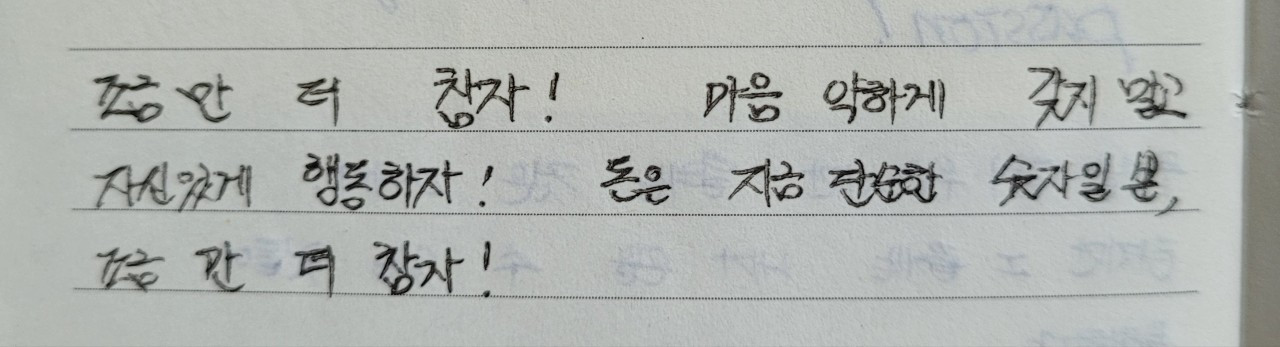 조금 만 더 참자! 마음 약하게 갖지 말고
자신있게 행동하자! 돈은 지금 단순한 숫자일 뿐,
조금 만 더 참자!